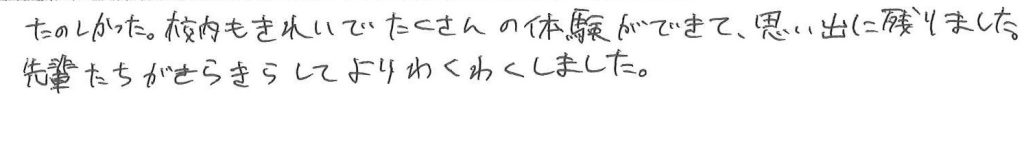 たのしかった。校内もきれいでたくさんの体験ができて、思い出に残りました。
先輩たちがきらきらしてよりわくわくしました。